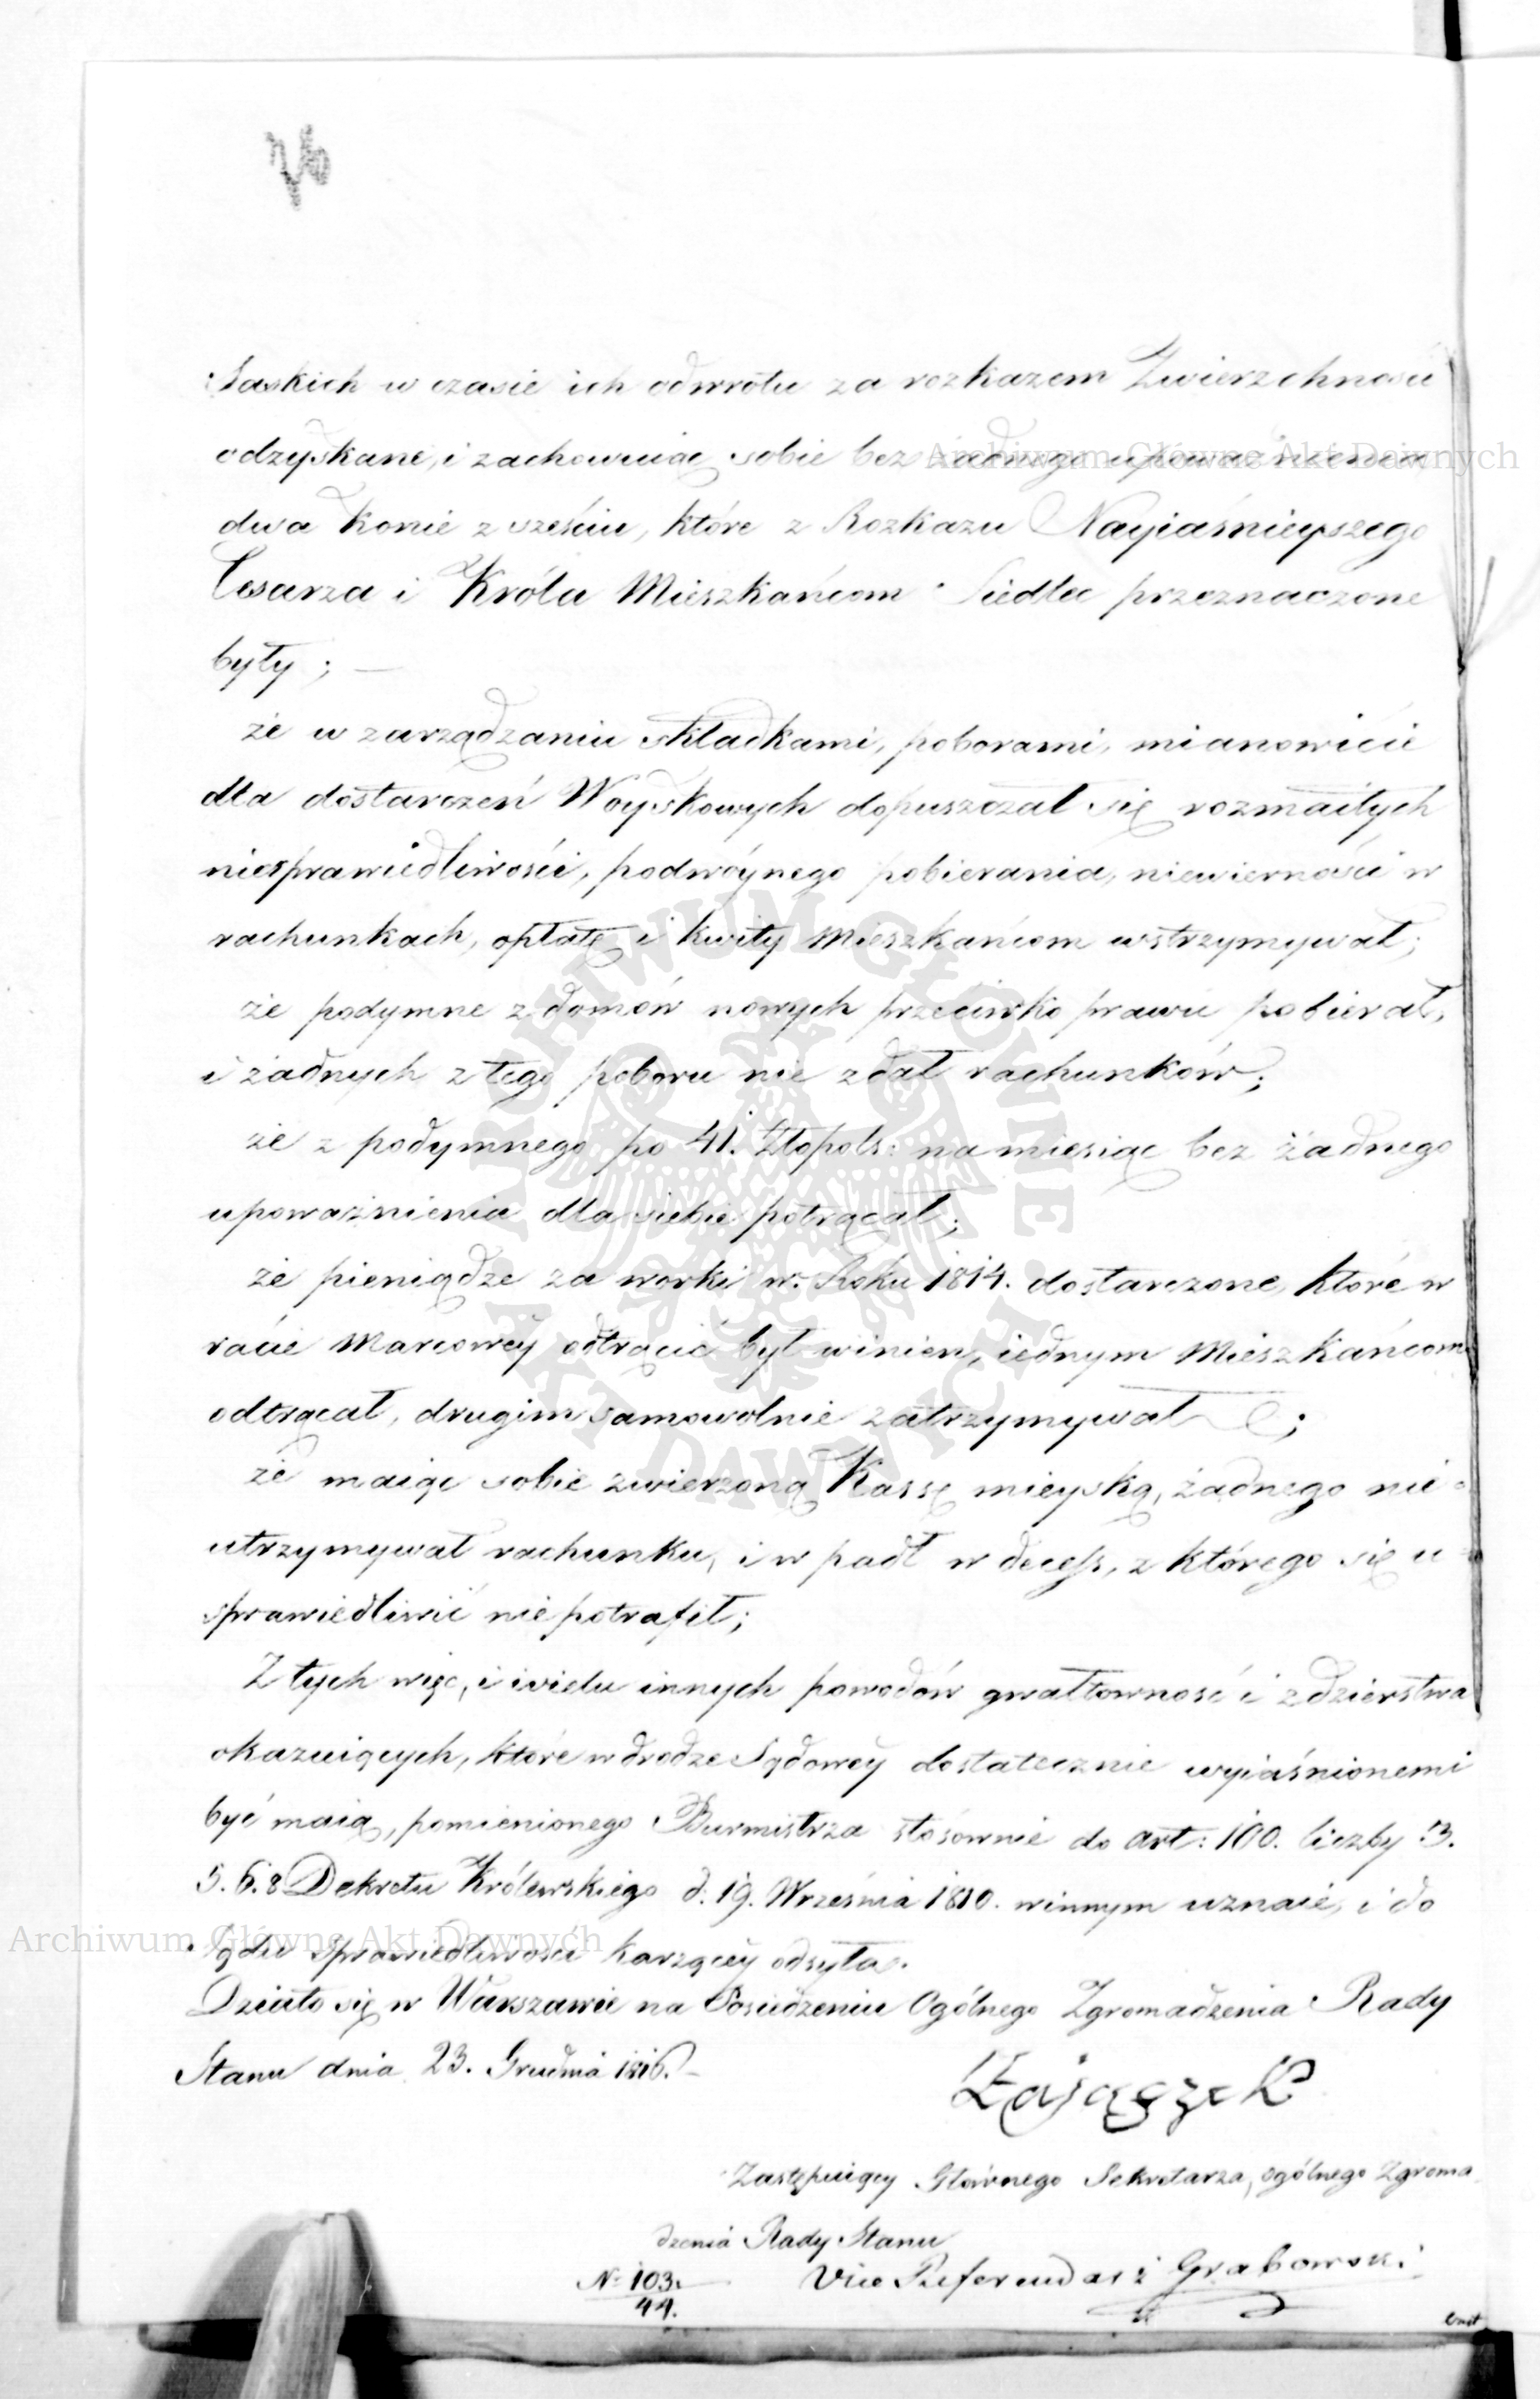 Saskich w czasie ich odwrotu za rozkazem Zwierzchności
odzyskane, i zachowuiąc sobie bez żadnego upoważnienia
dwa konie z sześciu, które z Rozkazu Nayiaśnieyszego
Cesarza i Króla Mieszkańcom Siedlec przeznaczone
były; —
że w zarządzaniu składkami, poborami, mianowicie
dla dostarczeń Woyskowych dopuszczał się rozmaitych
niesprawiedliwości, podwóynego pobierania, niewierności w
rachunkach, opłatę i kwity Mieszkańcom wstrzymywał;
że podymne z domów nowych przeciwko prawu pobierał,
i żadnych z tego poboru nie zdał rachunków;
że z podymnego po 41. Złopols: na miesiąc bez żadnego
upoważnienia dla siebie potrącał;
że pieniądze za worki w Roku 1814. dostarczone, które w
racie Marcowey odtrącić był winien, iednym Mieszkańcom
odtrącał, drugim samowolnie zatrzymywał;
że maiąc sobie zwierzoną Kassę mieyską, żadnego nie
utrzymywał rachunku, i w padł w decess, z którego się u-
sprawiedliwić nie potrafił;
Z tych więc, i wielu innych powodów gwałtowność i zdzierstwa
okazuiących, które w drodze Sądowey dostatecznie wyiaśnionemi
być maią, pomienionego Burmistrza stósownie do art: 100. liczby 3.
5. 6. 8 Dekretu Królewskiego d. 19. Września 1810. winnym uznaie, i do
Sądu Sprawiedliwości Karzącey odsyła.
Działo się w Warszawie na Posiedzeniu Ogólnego Zgromadzenia Rady
Stanu dnia 23. Grudnia 1816. —
Zajączek
Zastępuiący Głównego Sekretarza, ogólnego Zgroma
dzenia Rady Stanu
Vice Referendarz Grabowski
Nº 103.
44.
Archiwum Główne Akt Dawnych
ARCHIWUM GŁÓWNE AKT DAWNYCH
Archiwum Główne Akt Dawnych